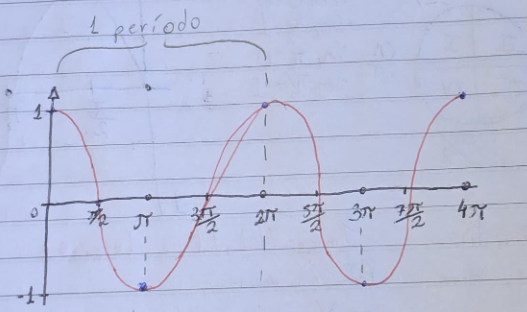 1 período
1
0 π/2 π 3π/2 2π 5π/2 3π 7π/2 4π
-1